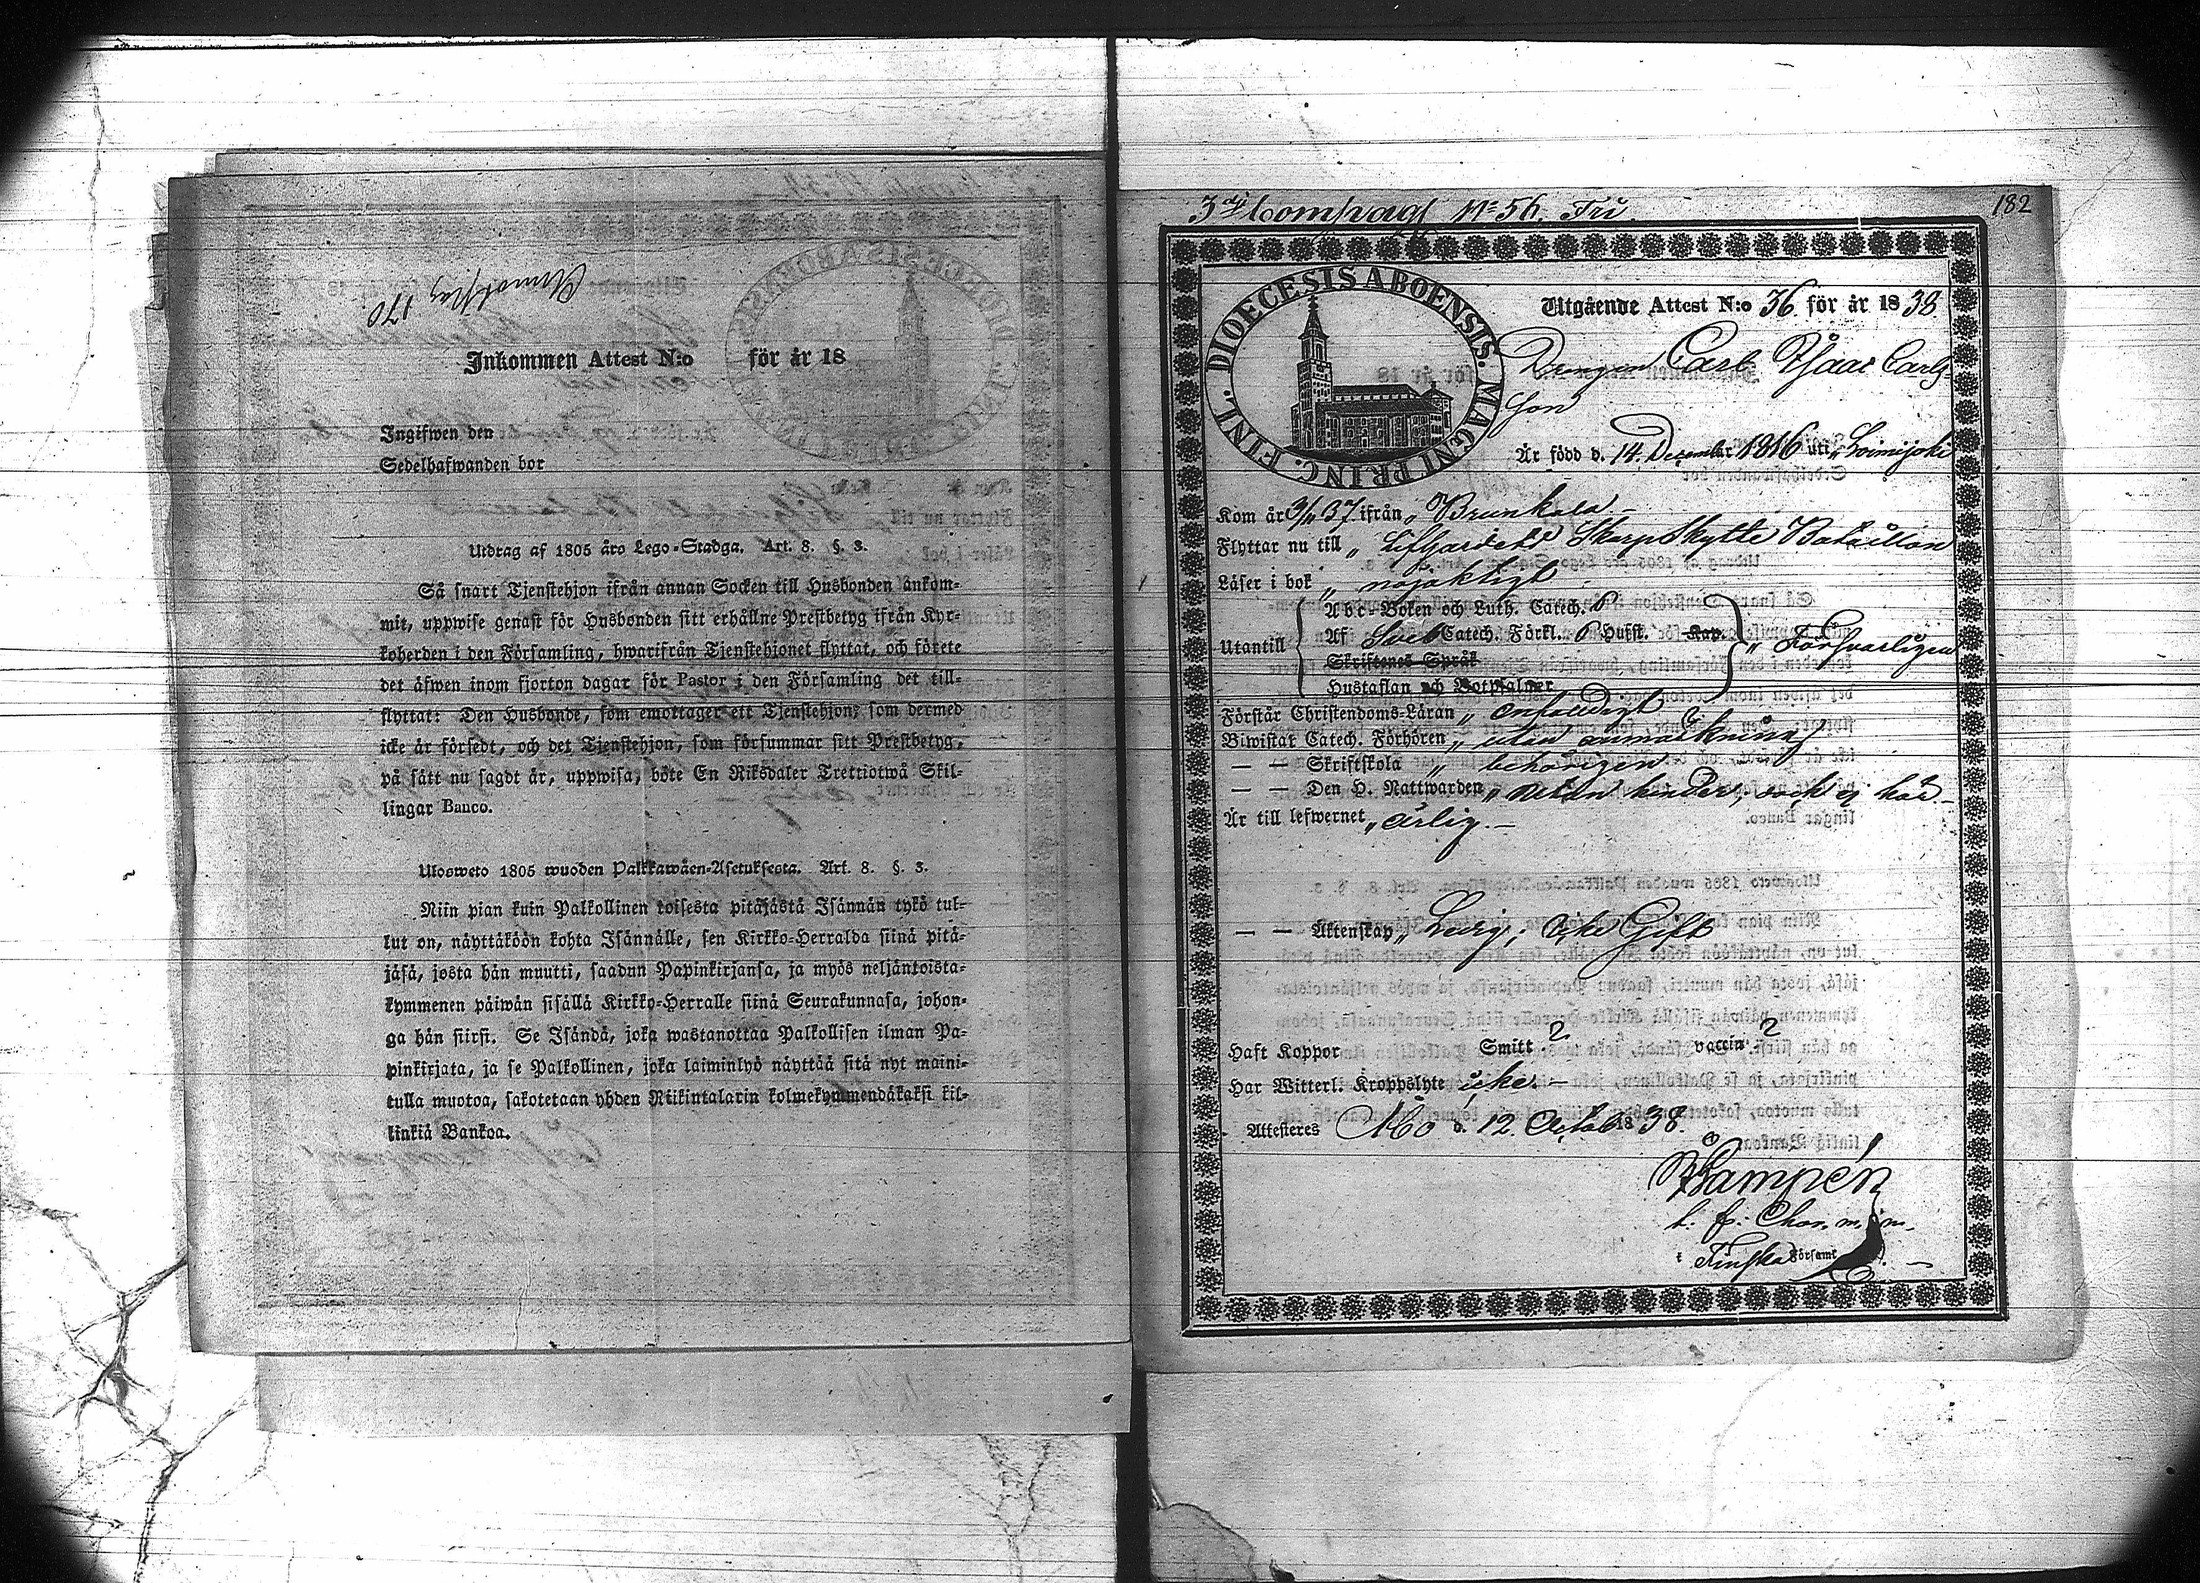 Anmält pag 170
Inkommen Attest N:o för år 18
Ingifwen den
Sedelhafwanden bor
Utdrag af 1805 års Lego-Stadga. Art. 8. §. 3.
Så snart Tjenstehjon ifrån annan Socken till Husbonden ankom-
mit, uppwise genast för Husbonden sitt erhållne Prestbetyg ifrån Kyr-
koherden i den Församling, hwarifrån Tjenstehjonet flyttat, och förete
det äfwen inom fjorton dagar för Pastor i den Församling det till-
flyttat: Den Husbonde, som emottager ett Tjenstehjon, som dermed
icke är försedt, och det Tjenstehjon, som försummar sitt Prestbetyg,
på sätt nu sagdt är, uppwisa, böte En Riksdaler Trettiotwå Skil-
lingar Banco.
Ulosweto 1805 wuoden Palkkawäen-Asetuksesta. Art. 8. §. 3.
Niin pian kuin Palkollinen toisesta pitäjästä Isännän tykö tul-
lut on, näyttäköön kohta Isännälle, sen Kirkko-Herralda siinä pitä-
jäsä, josta hän muutti, saadun Papinkirjansa, ja myös neljäntoista-
kymmenen päiwän sisällä Kirkko-Herralle siinä Seurakunnasa, johon-
ga hän siirsi. Se Isändä, joka wastanottaa Palkollisen ilman Pa-
pinkirjata, ja se Palkollinen, joka laiminlyö näyttää sitä nyt maini-
tulla muotoa, sakotetaan yhden Riikintalarin kolmekymmendäkaksi kil-
linkiä Bankoa.
182
3dj Compagl No 56. Fri
DIOECESIS ABOENSIS. MAGNI PRINC. FINL.
Utgående Attest N:o 36 för år 1838
Drengen Carl Isaac Carls-
son
Är född d. 14. December 1816 uti Loimijoki
Kom år 37 ifrån Brunkala
Flyttar nu till Lifgardets Skarp Skytte Bataillon
Läser i bok nöjaktigt
Abc-Boken och Luth. Catech.
Utantill Af Sveb Catech. Förkl. Husst. Kap. Försvarligen
Skriftenes Språk
Hustaflan och Botpsalmer
Förstår Christendoms-Läran enfaldigt
Biwistat Catech. Förhören utan anmärkning
— — Skriftskola behörigen
— — Den H. Nattwarden utan hinder, och
Är till lefwernet ärlig. —
— — Äktenskap Ledig; icke Gift
Haft Koppor Smitt ? vaccin ?
Har Witterl. Kroppslyte icke. —
Attesteres Åbo d. 12. Octob. 1838.
i Finska Församl